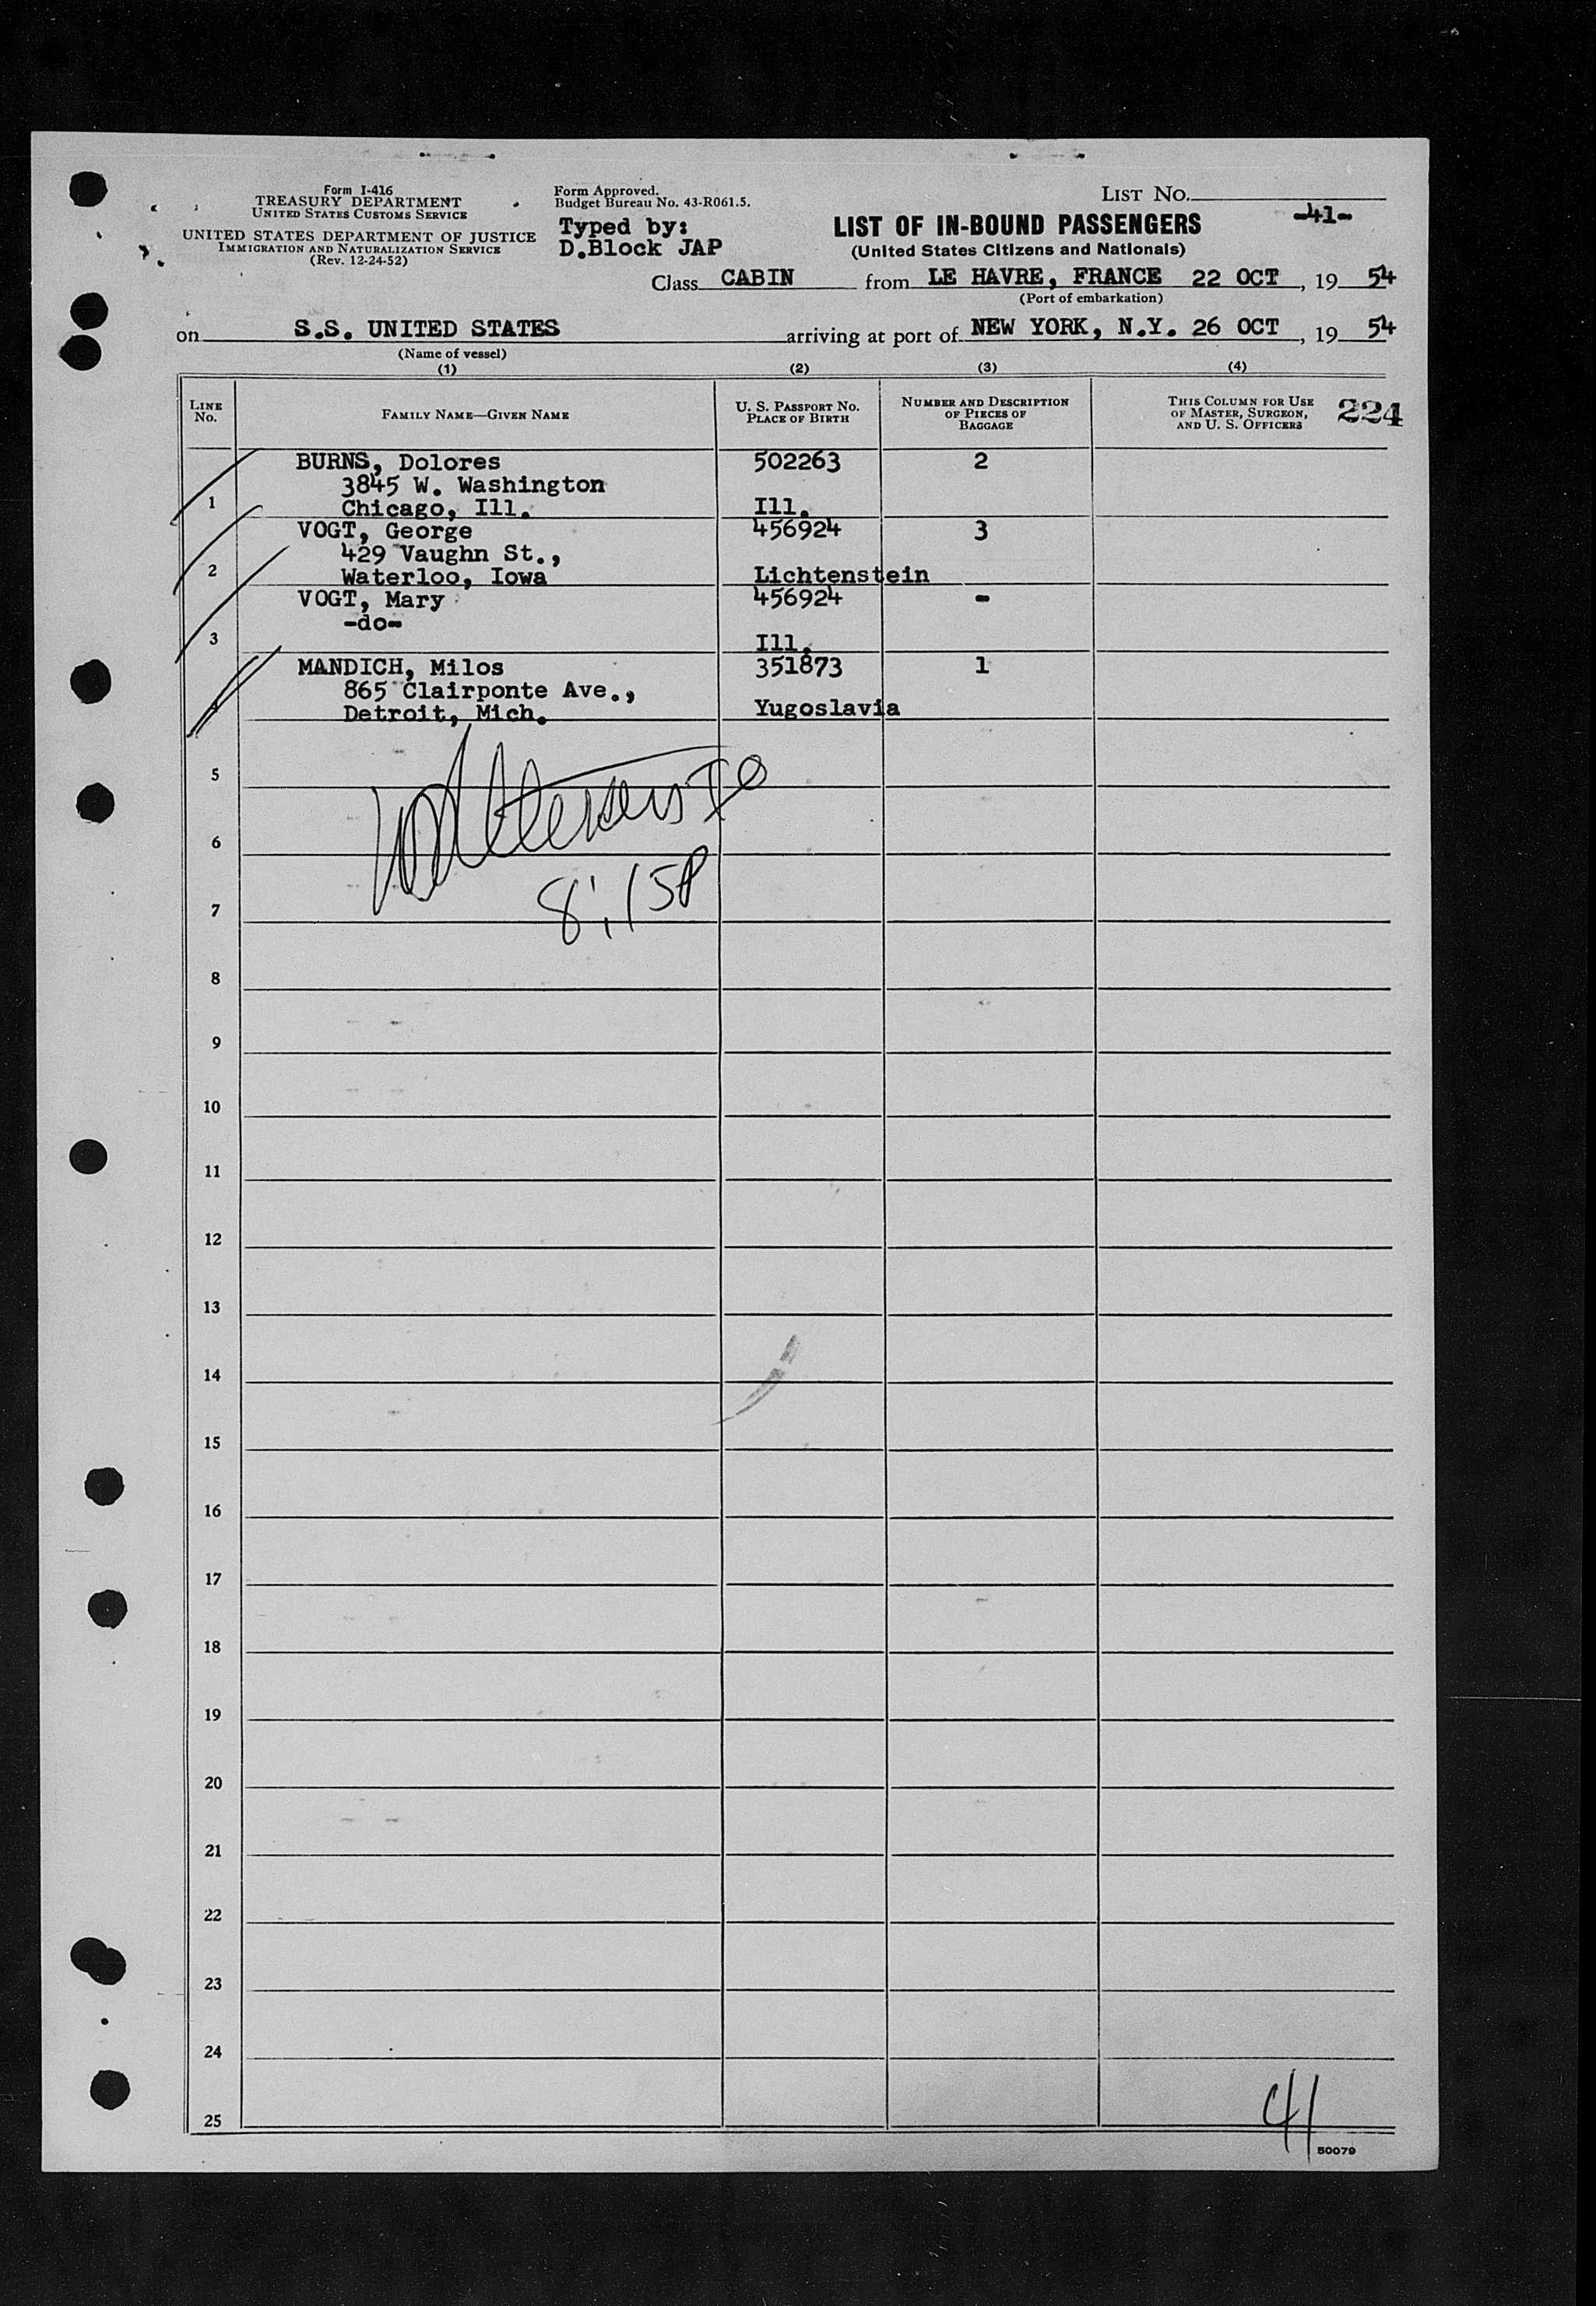 Form I-416
TREASURY DEPARTMENT
UNITED STATES CUSTOMS SERVICE
UNITED STATES DEPARTMENT OF JUSTICE
IMMIGRATION AND NATURALIZATION SERVICE
(Rev. 12-24-52)
Form Approved.
Budget Bureau No. 43-R061.5.
Typed by:
D.Block JAP
LIST NO.
-41-
LIST OF IN-BOUND PASSENGERS
(United States Citizens and Nationals)
Class CABIN from LE HAVRE, FRANCE 22 OCT, 19 54
(Port of embarkation)
on S.S. UNITED STATES arriving at port of NEW YORK, N.Y. 26 OCT, 19 54
(Name of vessel)
(1) (2) (3) (4)
LINE No. FAMILY NAME—GIVEN NAME U. S. PASSPORT NO. PLACE OF BIRTH NUMBER AND DESCRIPTION OF PIECES OF BAGGAGE THIS COLUMN FOR USE OF MASTER, SURGEON, AND U. S. OFFICERS 224
BURNS, Dolores 502263 2
3845 W. Washington
1 Chicago, Ill. Ill.
VOGT, George 456924 3
429 Vaughn St.,
2 Waterloo, Iowa Lichtenstein
VOGT, Mary 456924 -
-do-
3 Ill.
MANDICH, Milos 351873 1
865 Clairponte Ave.,
4 Detroit, Mich. Yugoslavia
5
6
7
8
9
10
11
12
13
14
15
16
17
18
19
20
21
22
23
24
25
41
50079